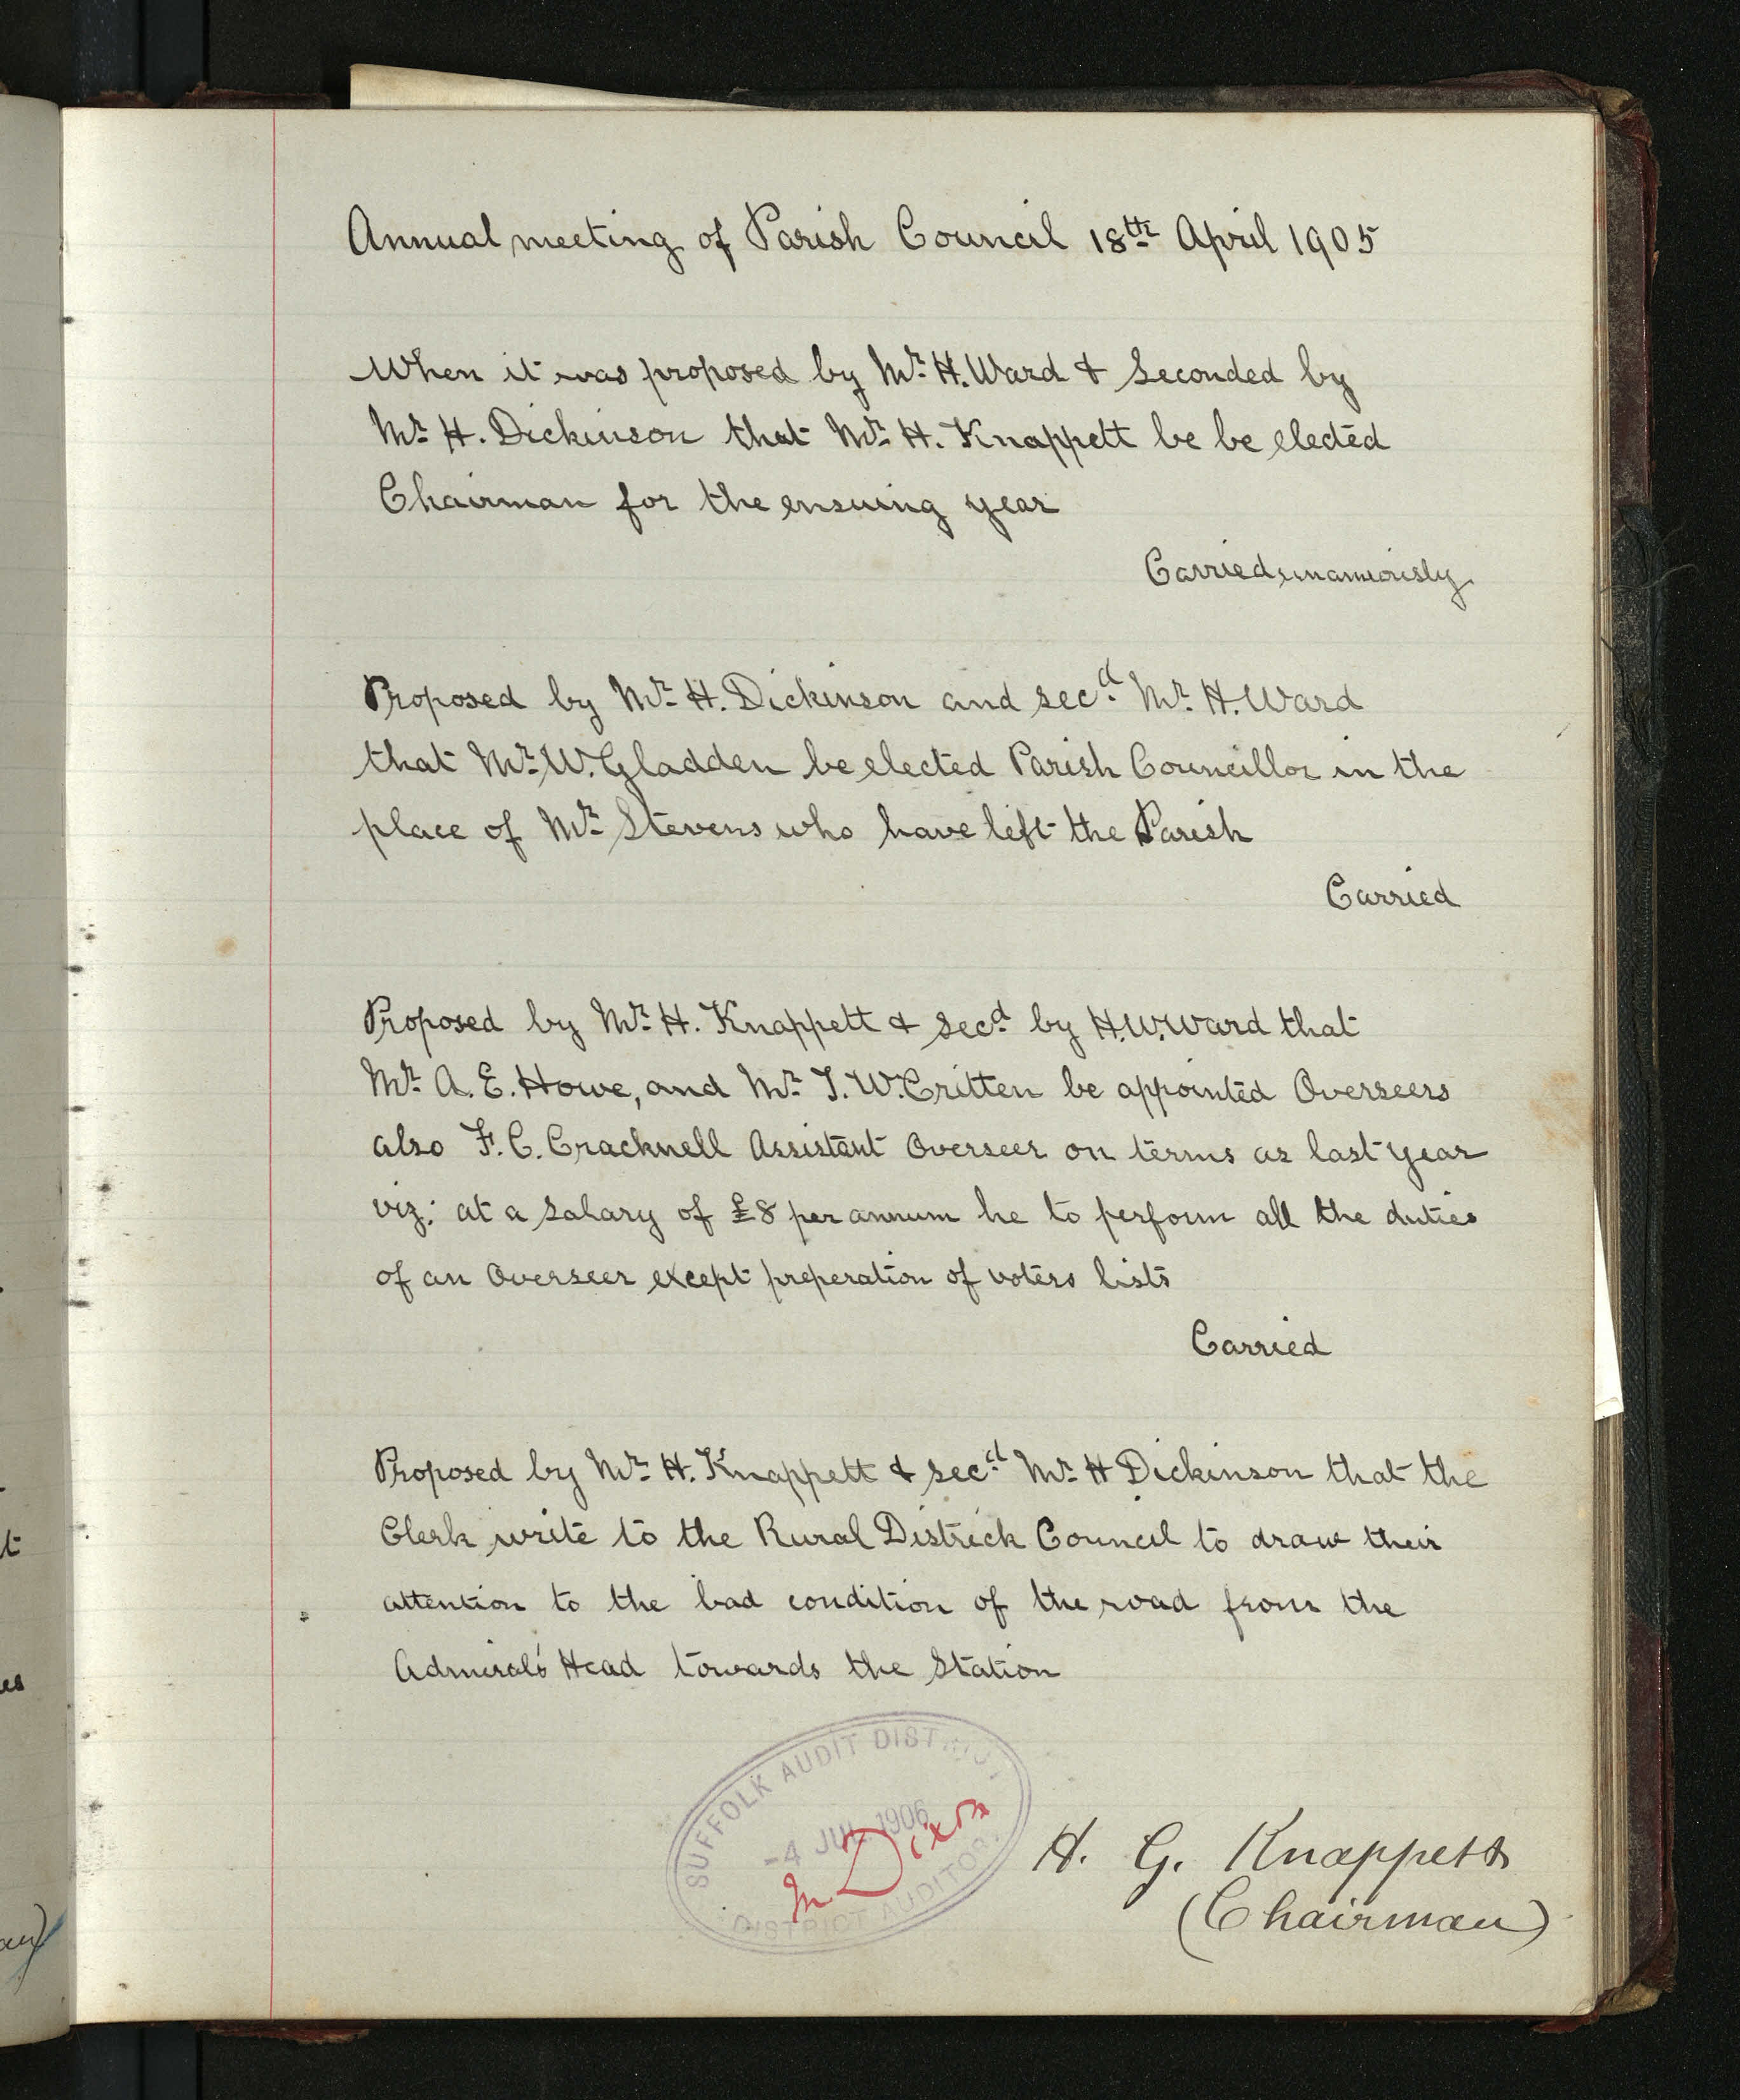 Annual meeting of Parish Council 18th April 1905
When it was proposed by Mr H. Ward & Seconded by
Mr H. Dickinson that Mr H. Knappett be be elected
Chairman for the ensuing year
Carried unamiously
Proposed by Mr H. Dickinson and secd Mr H. Ward
that Mr W. Gladden be elected Parish Councillor in the
place of Mr Stevens who have left the Parish
Carried
Proposed by Mr H. Knappett & secd by H.W. Ward that
Mr A. E. Howe, and Mr T. W. Critten be appointed Overseers
also F. C. Cracknell Assistant Overseer on terms as last year
viz: at a salary of £8 per annum he to perform all the duties
of an Overseer except preperation of voters lists
Carried
Proposed by Mr H. Knappett & secd Mr H Dickinson that the
Clerk write to the Rural Districk Council to draw their
attention to the bad condition of the road from the
Admiral's Head towards the Station
SUFFOLK AUDIT DISTRICT
-4 JUL 1906
Dixon
DISTRICT AUDITOR.
H. G. Knappett
(Chairman)